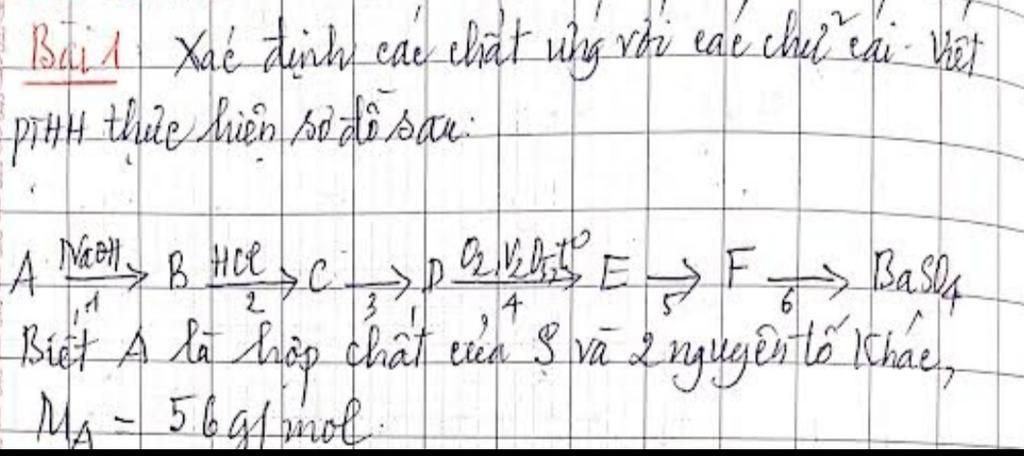 Bài 1: Xác định các chất ứng với các chữ cái. Viết
PTHH thực hiện sơ đồ sau:
A NaOH → 1 B HCl → 2 C → 3 D O2, V2O5, t° → 4 E → 5 F → 6 BaSO4
Biết A là hợp chất của S và 2 nguyên tố khác,
MA = 56 g/mol.